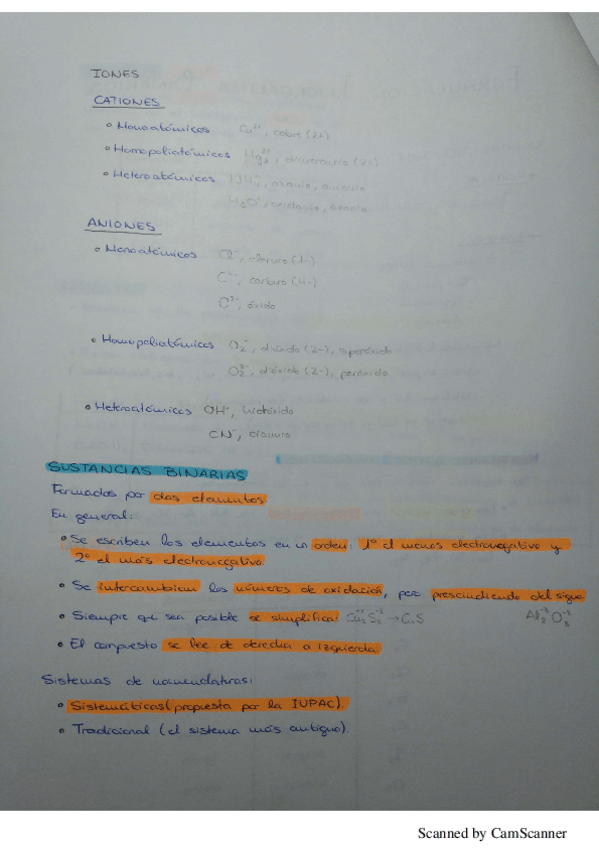 IONES
CATIONES
• Monoatómicos Cu²⁺, cobre (2+)
• Homopoliatómicos Hg₂²⁺, dimercurio (2+)
• Heteroatómicos NH₄⁺, azanio, amonio
H₃O⁺, oxidanio, oxonio
ANIONES
• Monoatómicos Cl⁻, cloruro (1-)
C⁴⁻, carburo (4-)
O²⁻, óxido
• Homopoliatómicos O₂⁻, dióxido (2-), superóxido
O₂²⁻, dióxido (2-), peróxido
• Heteroatómicos OH⁻, hidróxido
CN⁻, cianuro
SUSTANCIAS BINARIAS
Formados por dos elementos
En general:
• Se escriben los elementos en un orden: 1º el menos electronegativo y
2º el más electronegativo.
• Se intercambian los números de oxidación, prescindiendo del signo
• Siempre que sea posible se simplifica: Cu₂⁺²S₂⁻² → CuS Al₂⁺³O₃⁻²
• El compuesto se lee de derecha a izquierda
Sistemas de nomenclaturas:
• Sistemáticas (propuesta por la IUPAC).
• Tradicional (el sistema más antiguo).
Scanned by CamScanner